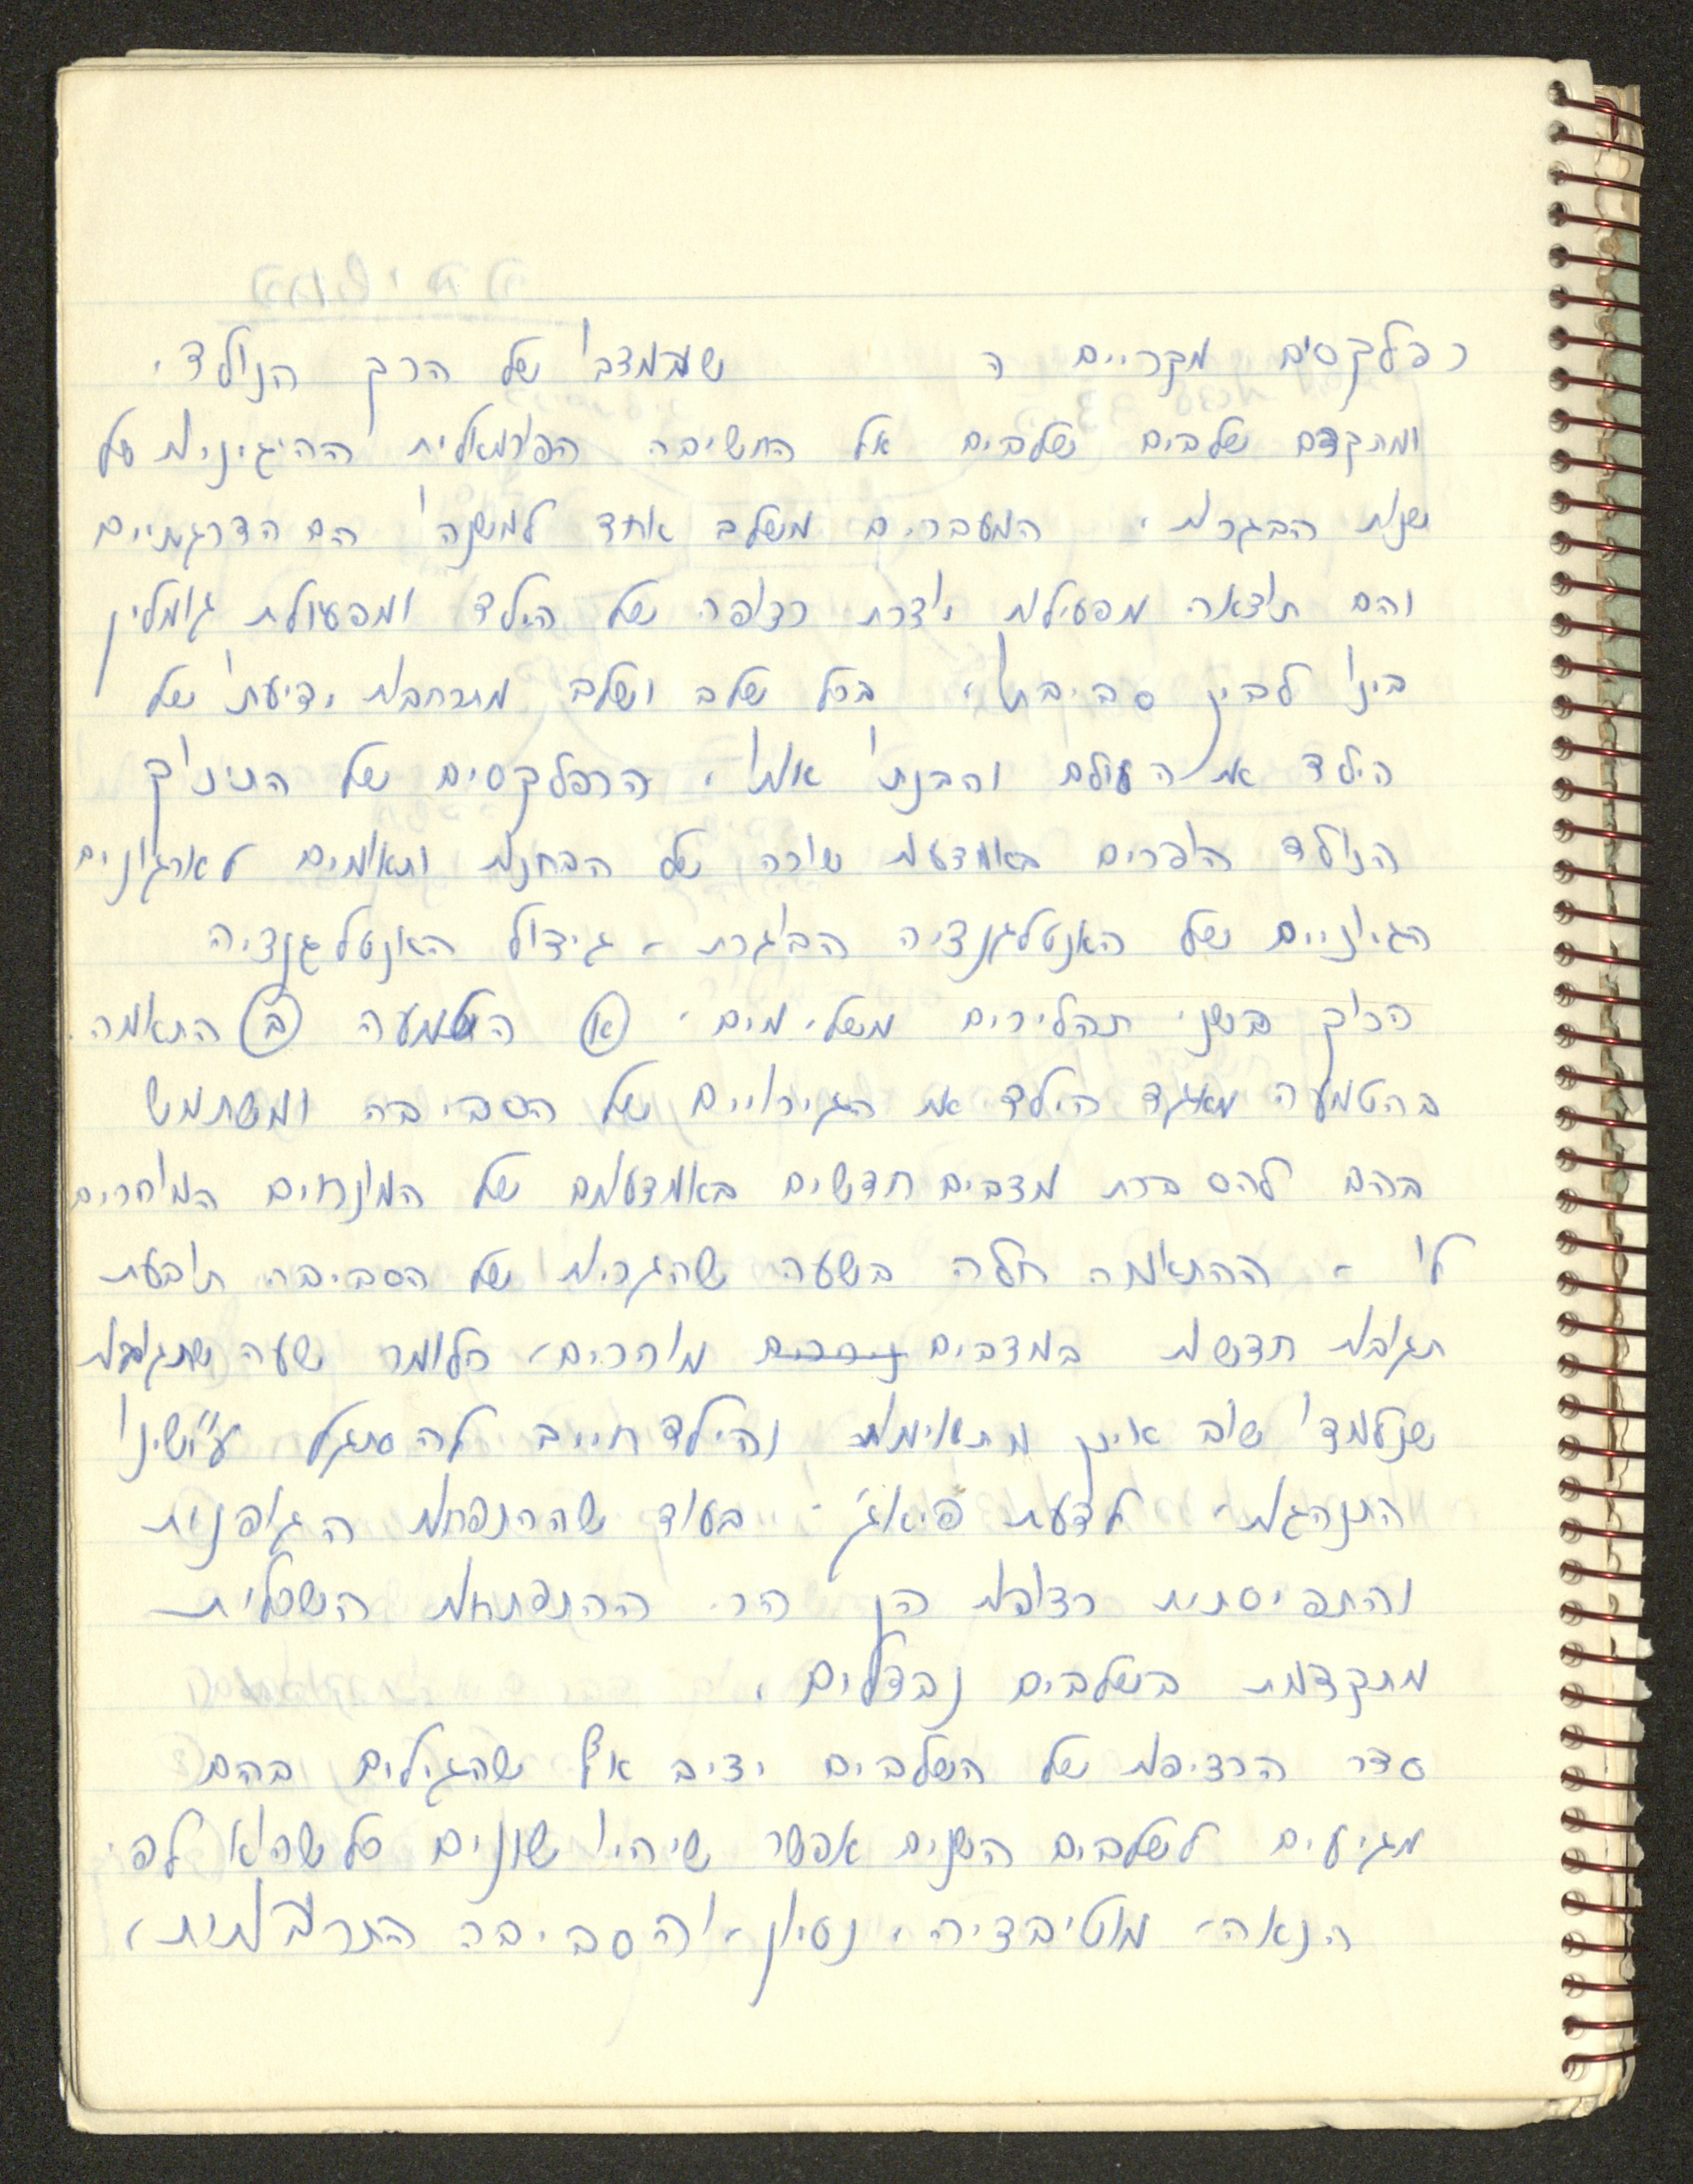 רפלקסים מקריים ה שמעמדו של הרך הנולד.
ומתקדם שלבים שלבים אל החשיבה הפורמאלית ההיגיונית של
שנות הבגרות. המעברים משלב אחד למשנהו הם הדרגתיים
והם תוצאה מפעילות יוצרת רצופה של הילד ומפעולת גומלין
בינו לבין סביבתו. בכל שלב ושלב מתרחבות ידיעתו של
הילד את העולם והבנתו אותו. הרפלקסים של התינוק
הנולד הופכים באמצעות שורה של הבחנות ותאומים לארגונים
הגיוניים של האנטלגנציה הבוגרת. גידול האונטלגנציה
כרוך בשני תהליכים משלימים. (א) הטמעה (ב) התאמה.
בהטמעה מאגד הילד את הגירויים של הסביבה ומשתמש
בהם להסברת מצבים חדשים באמצעותם של המונחים המוכרים
לו. ההתאמה חלה בשעה שהגרות של הסביבה תובעת
תגובות חדשות במצבים ניכרים מוכרים, כלומר שעה שתגובות
שנלמדו שוב אינן מתאימות והילד חייב להסתגל ע"י שינוי
התנהגות. לדעת פיאג' - בעוד שההתפתחות הגופנית
והתפיסתית רצופות הן הרי ההתפתחות השכלית
מתקדמת בשלבים נבדלים.
סדר הרציפות של השלבים יציב אך שהגילים בהם
מגיעים לשלבים השנים אפשר שיהיו שונים כל שהוא לפי
הנאה, מוטיבציה, נסיון, והסביבה התרבותית.